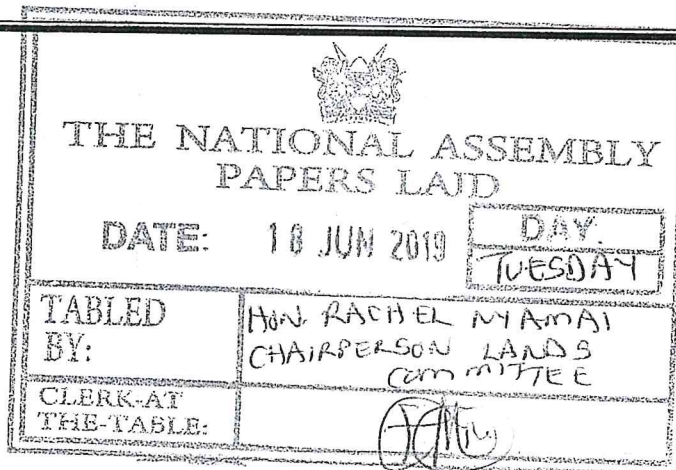 THE NATIONAL ASSEMBLY
PAPERS LAID
DATE: 18 JUN 2019
DAY.
TUESDAY
TABLED
BY:
HON. RACHEL NYAMAI
CHAIRPERSON LANDS
COMMITTEE
CLERK-AT
THE-TABLE: